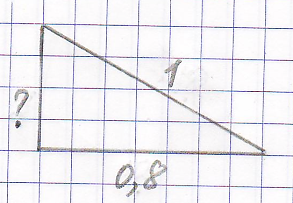 1
?
0,8